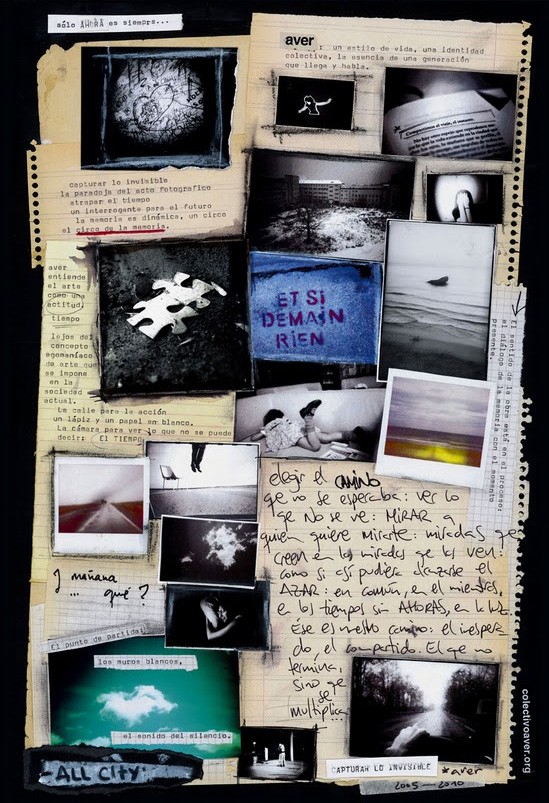 sólo AHORA es siempre...
aver
: un estilo de vida, una identidad
colectiva, la esencia de una generación
que llega y habla.
capturar lo invisible
la paradoja del acto fotografico
atrapar el tiempo
un interrogante para el futuro
la memoria es dinámica, un circo
el circo de la memoria.
aver
entiende
el arte
como una
actitud,
tiempo
lejos del
concepto
egomaníaco
de arte que
se impone
en la
sociedad
actual.
La calle para la acción
un lápiz y un papel en blanco.
La cámara para ver lo que no se puede
decir: EL TIEMPO
ET SI
DEMAIN
RIEN
El sentido de la obra está en el proceso:
el diálogo de la memoria con el momento
presente.
elegir el CAMINO
que no se esperaba: ver lo
que No se ve: MIRAR
quien quiere mirarte: miradas que
creen en las miradas que las ven:
como si así pudiera alcanzarse el
AZAR: en común, en el mientras,
en los tiempos sin AHORAS, en la luz.
Ése es nuestro camino: el inespera
do el compartido. El que no
termina,
sino que
se
multiplica...
Y mañana
... qué?
El punto de partida:
los muros blancos,
el sonido del silencio.
-ALL CITY-
CAPTURAR LO INVISIBLE
*aver
2005 - 2010
colectivoaver.org